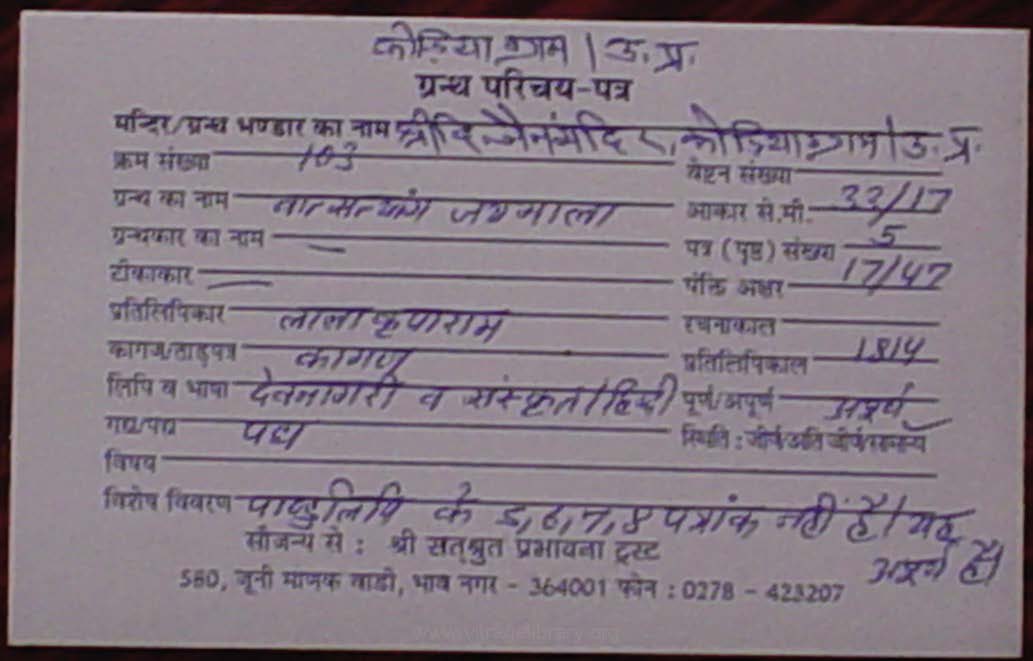 कोड़िया ग्राम / उ. प्र.
ग्रन्थ परिचय-पत्र
मन्दिर/ग्रन्थ भण्डार का नाम श्री दि. जैन मंदिर, कोड़िया ग्राम / उ. प्र.
क्रम संख्या 103 वेष्टन संख्या
ग्रन्थ का नाम जयमाला आकार से.मी. 33/17
ग्रन्थकार का नाम — पत्र (पृष्ठ) संख्या 5
टीकाकार — पंक्ति अक्षर 17/47
प्रतिलिपिकार लाला कृपाराम रचनाकाल
कागज/ताड़पत्र कागज प्रतिलिपिकाल 1814
लिपि व भाषा देवनागरी व संस्कृत/हिन्दी पूर्ण/अपूर्ण अपूर्ण
गद्य/पद्य पद्य स्थिति : जीर्ण/अति जीर्ण/सामान्य
विषय
विशेष विवरण पाण्डुलिपि के 5, 6, 7, 8 पत्रांक नहीं है। यह
अपूर्ण है।
सौजन्य से : श्री सत्श्रुत प्रभावना ट्रस्ट
580, जूनी माणक वाडी, भाव नगर - 364001 फोन : 0278 - 423207